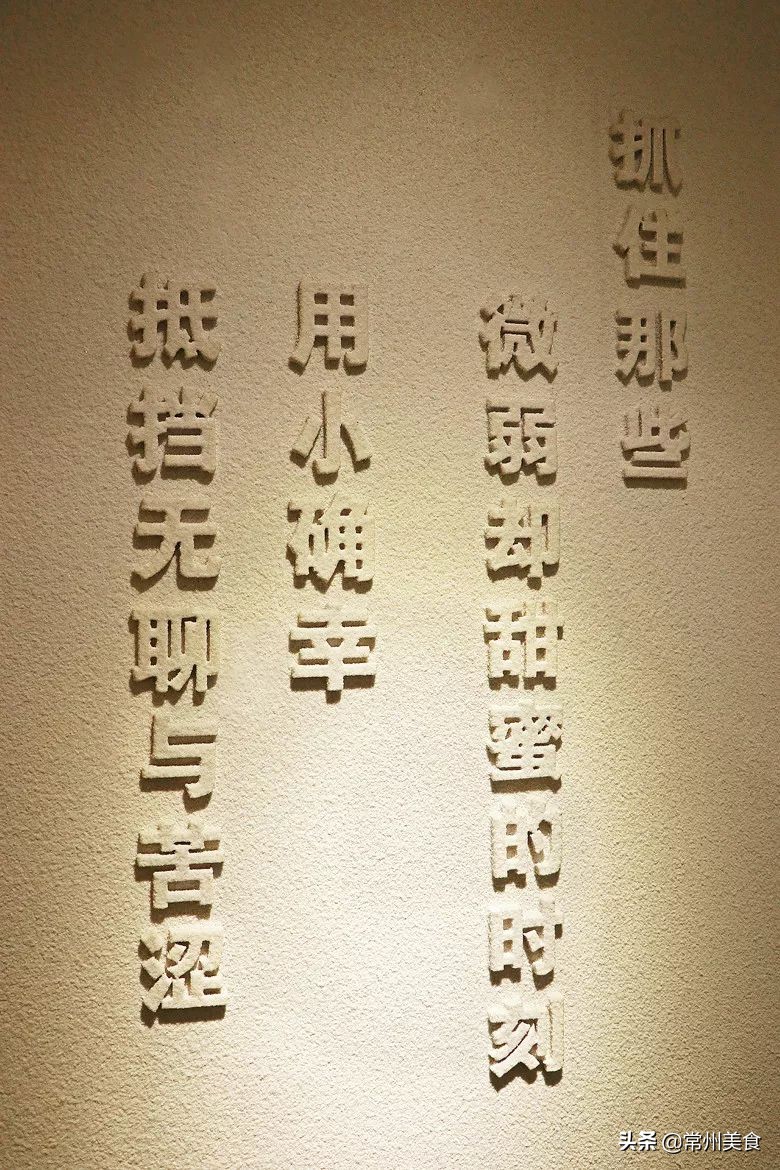 抓住那些
微弱却甜蜜的时刻
用小确幸
抵挡无聊与苦涩
头条 @常州美食